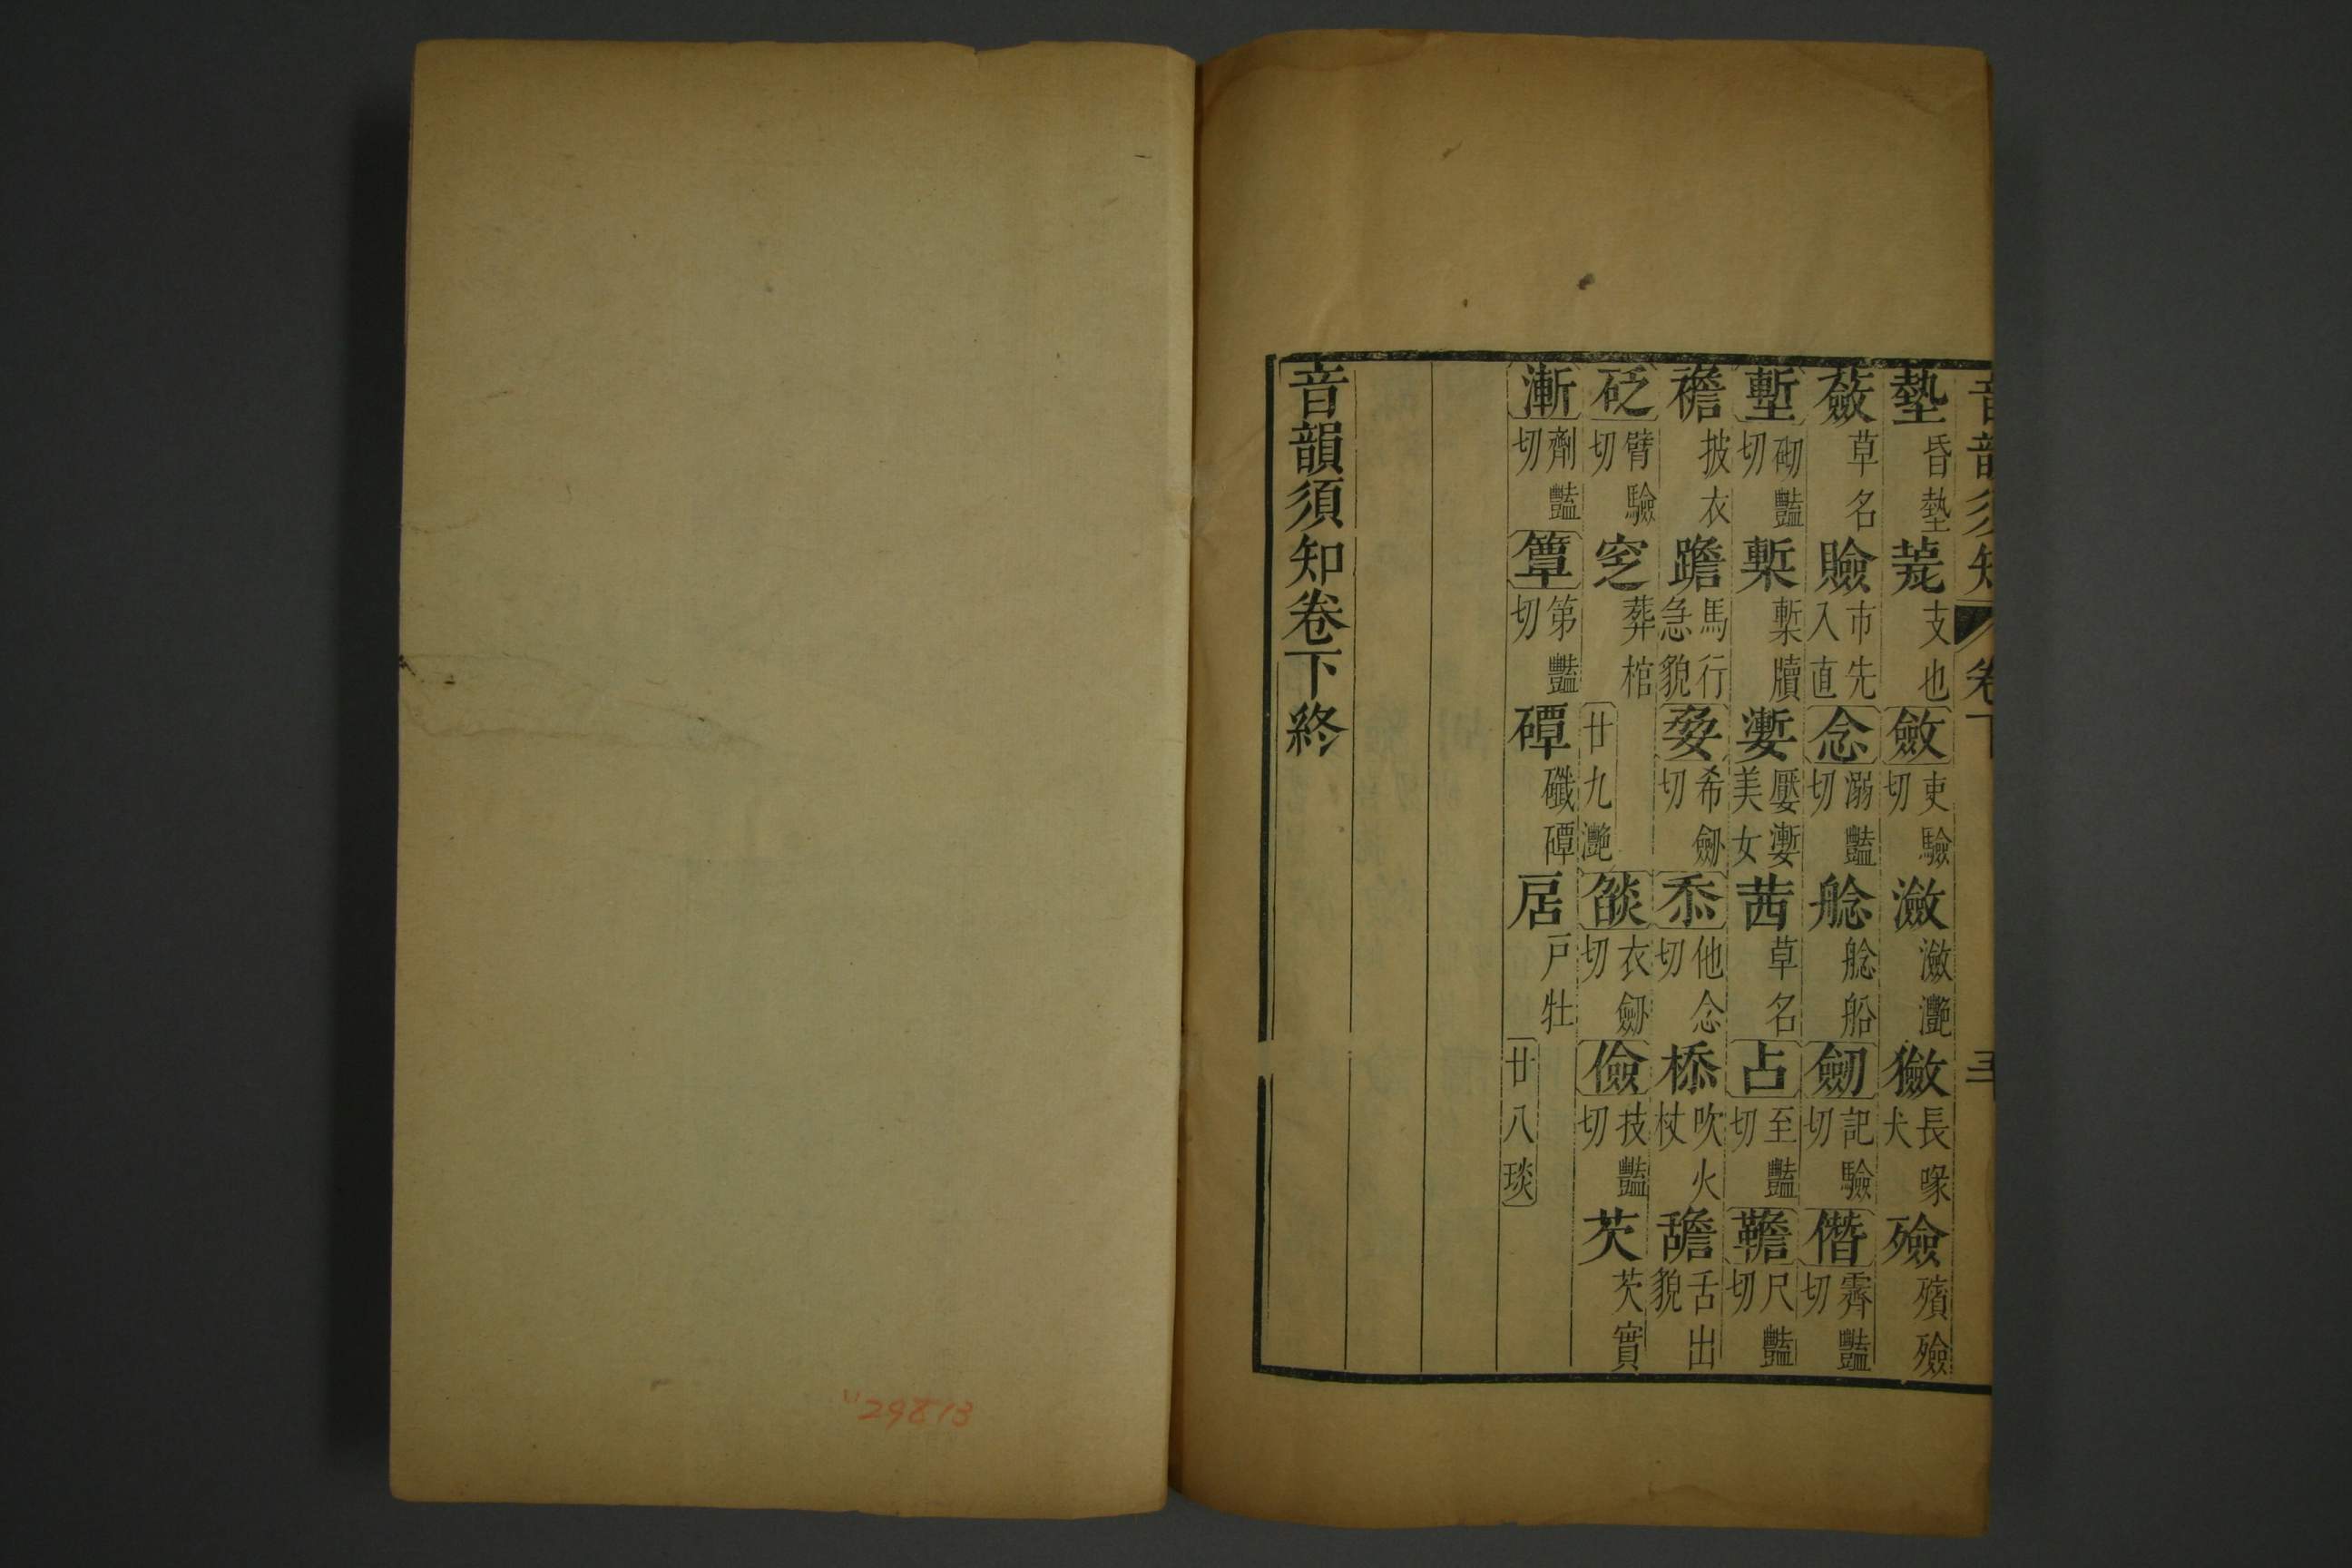 音韻須知 卷下
墊昏墊 萒支也 斂吏驗切 瀲瀲灩 獫長喙犬 殮殯殮
蘞草名 㿌市先入直 念溺豔切 艌艌船 劒記驗切 僭霽豔切
塹砌豔切 槧槧牘 㜞嬮㜞美女 茜草名 占至豔切 韂尺豔切
襜披衣 蹌馬行急貌 㛍希劒切 忝他念切 栝吹火杖 舚舌出貌
砭臂驗切 窆葬棺 廿九灩 燄衣劒切 儉技豔切 芡芡實
漸劑豔切 簟第豔切 磹礥磹 扂戶牡 廿八琰
音韻須知卷下終
29813